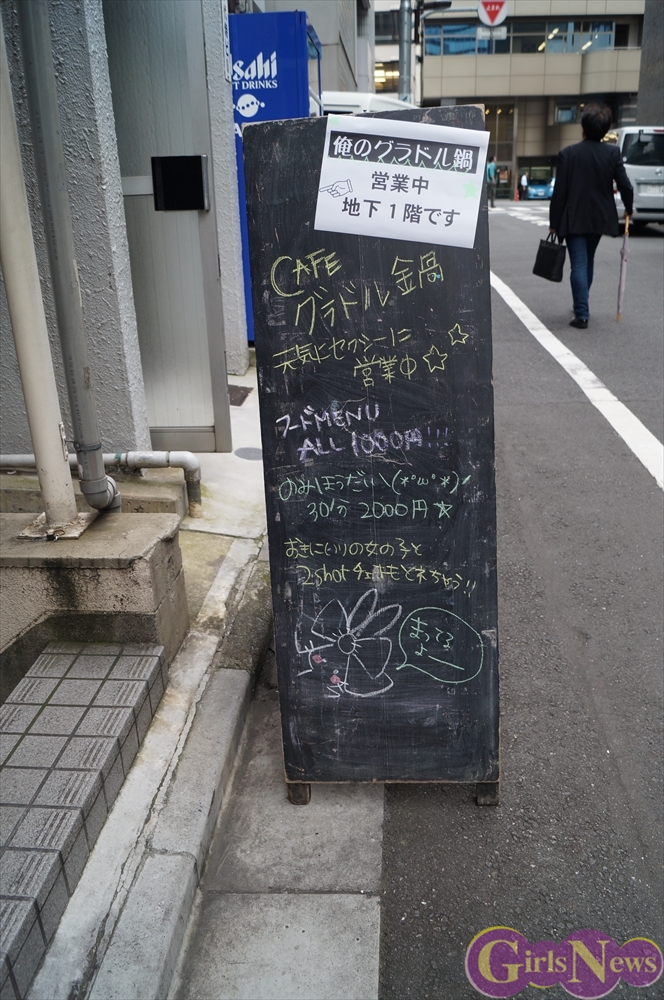 止まれ
sahi
T DRINKS
俺のグラドル鍋
営業中
地下1階です
CAFE
グラドル鍋
元気にセクシーに
営業中☆☆
フードMENU
ALL 1000円!!!
のみほうだい\(*°ω°*)/
30分 2000円☆
おきにいりの女の子と
2shotチェキもとれちゃう!!
まってる
よー
GIRLSNEWS